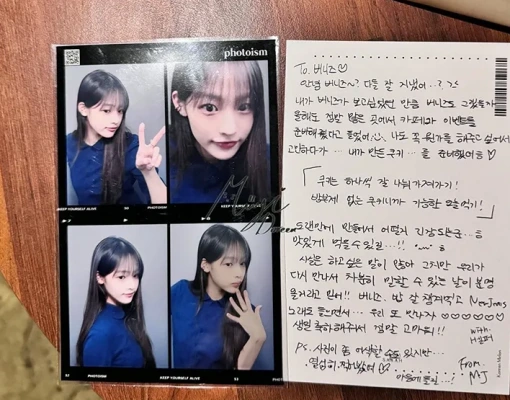 photoism
KEEP YOURSELF ALIVE
PHOTOISM
KEEP YOURSELF ALIVE
PHOTOISM
KEEP YOURSELF ALIVE
To. 버니즈♡
안녕 버니즈~? 다들 잘 지냈어..?
내가 버니즈가 보고싶었던 만큼 버니즈도 그랬을까
올해도 정말 많은 곳에서 카페와 이벤트를
준비해줬다고 들었어 나도 꼭 뭔가를 해주고 싶어서
고민하다가 ... 내가 만든 쿠키... 를 준비했어
「쿠키는 하나씩 잘 나눠가져가기!
방부제 없는 쿠키니까 가능한 빨리 먹기!」
오랜만에 만들어서 어떨지 긴장되는군..
맛있게 먹을 수 있길..!!
사실은 하고싶은 말이 많아 그치만 우리가
다시 만나서 차분히 말할 수 있는 날이 분명
올거라고 믿어!! 버니즈 밥 잘 챙겨먹고 NewJeans
노래도 들으면서... 우리 또 만나자 ♡♡♡♡♡♡
생일 축하해주셔서 정말 고마워!!
with.
P.S. 사진이 좀 어색할 수도 있지만...
열심히 찍어봤어
From.
MJ